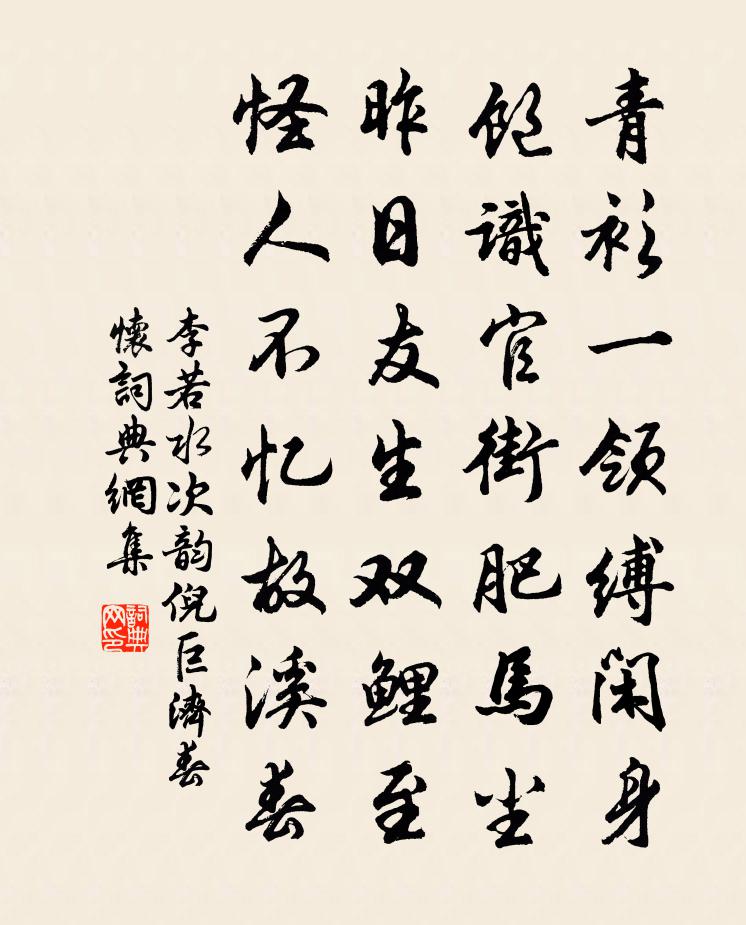 青衫一领缚闲身
饱識官街肥馬尘
昨日友生双鲤至
怪人不忆故溪春
李若水次韵倪巨濟春
懷詞典網集
詞典网印